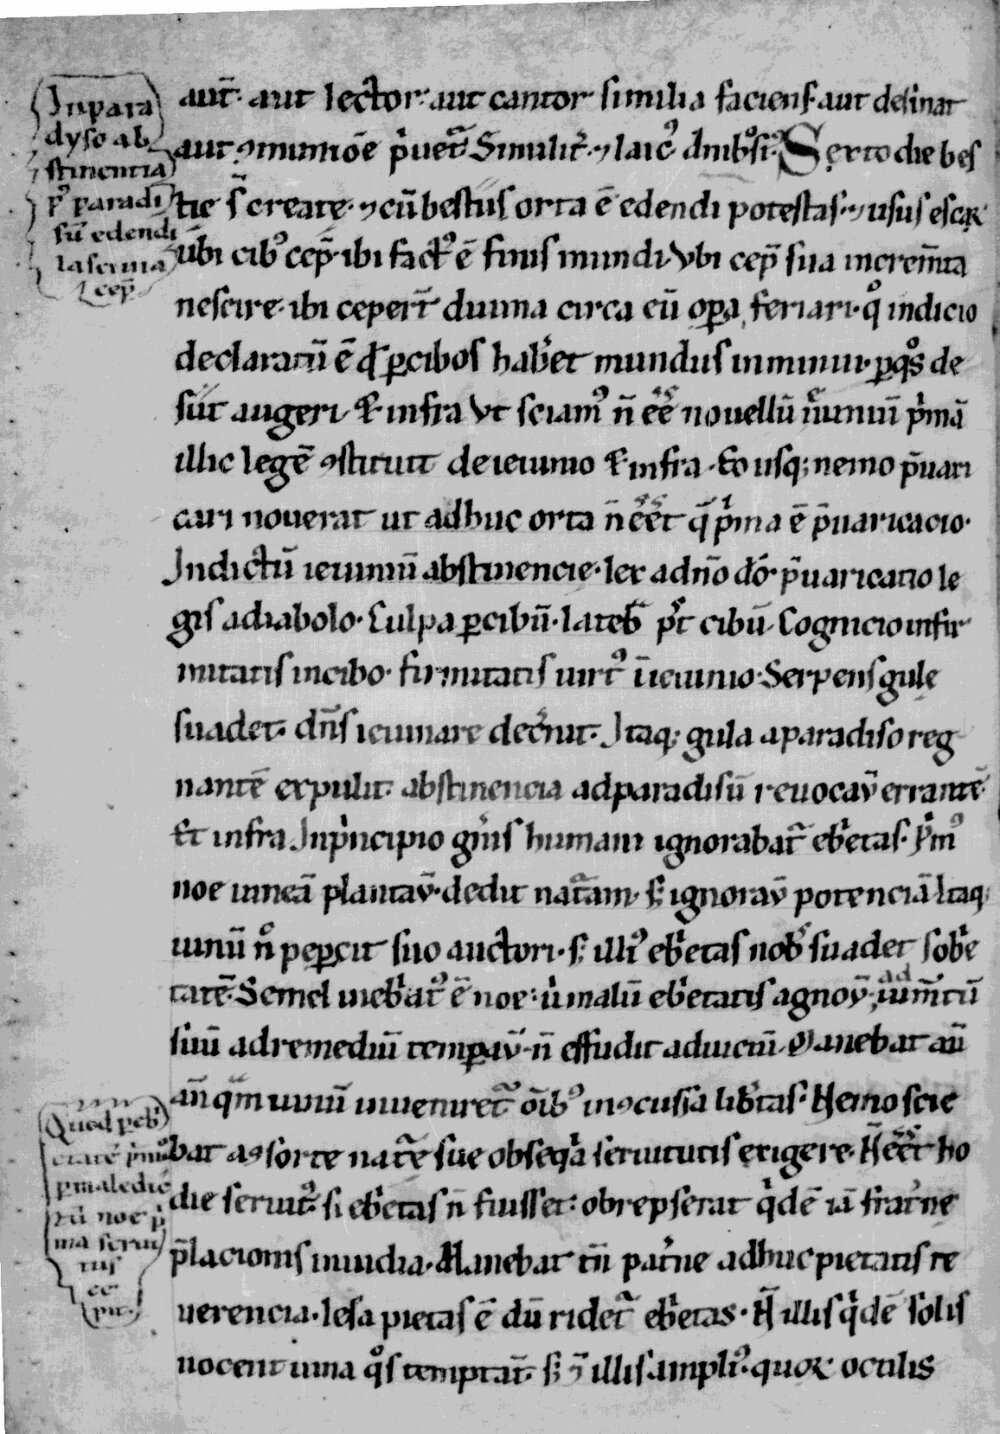 Inpara
dyso ab
stinentia
pꝰ paradi
sū edendi
lasciuia
cep̄
aut̄· aut lector· aut cantor similia faciens· aut desinat
aut ꝯmunióē p̍uet᷑· Similit̄· ⁊ laicꝰ· dīnibꝰsi· Sexto die bes
tie s̄ create· ⁊ cū bestiis orta ē edendi potestas· ⁊ usus escaꝝ
ubi cibꝰ cep̄· ibi factꝰ ē finis mundi· Vbi cep̄ sua increm̄ta
nescire· ibi ceper̄t diuina circa eū oꝑa feriari· qͦ indicio
declaratū ē qd̓ ꝑcibos hab̓et mundus inminui· ꝑqͦs de
siit augeri· Et infra Vt sciamꝰ n̄ eēē nouellū ieiuniū p̍mā
illic legē ꝯstituit de ieiunio Et infra· Eo usq; nemo p̄uari
cari nouerat ut adhuc orta n̄ eēt q̄ p̍ma ē p̄uaricacio·
Indictū ieiuniū abstinencie· lex adn̄o dō· p̄uaricatio le
gis a diabolo· Culpa ꝑcibū· lateb̓ pꝰt cibū Cognicio infir
mitatis incibo· firmitatis uirtꝰ ī ieiunio· Serpens gulę
suadet· dn̄s ieiunare dec̓nit· Itaq; gula aparadiso reg
nantē expulit· abstinencia adparadisū reuocav̄ errantē·
Et infra Inp̍ncipio gn̄is humani ignorabat᷑ eb̓etas· P̍mꝰ
noe uineā plantav̄· dedit nat᷑am· s; ignorav̄ potenciā Itaq;
uinū n̊ peꝑcit suo auctori· s; illiꝰ eb̓etas nob̓ suadet sob̓e
tatē· Semel inebr̓atꝰ ē noe· ū malū eb̓etatis agnov̄ ad ium̄tū
suū adremediū temꝑav̄· n̄ effudit aduiciū· Manebat aū
an̄ qm̄ uinū inueniret᷑ oīb̓ꝰ inꝯcussa lib̓tas· Nemo scie
bat aꝯsorte nat᷑e sue obseq̍a seruitutis exigere· N̄ eēt ho
die seruitꝰ· si eb̓etas n̄ fuisset· obrepserat q̍dē iā frat̓ne
p̄lacionis inuidia· Manebat tn̄ pat̓ne adhuc pietatis re
uerencia· lesa pietas ē dū ridet᷑ eb̓etas· N̄ illis q̍dē solis
nocent uina qͦs temptat̄· s; ⁊ illis ampliꝰ· quoꝝ oculis
Quod p eb̓
etatē p̍mū
ꝑmaledic
tū noe p̍
ma serui
tus
ce
pit·